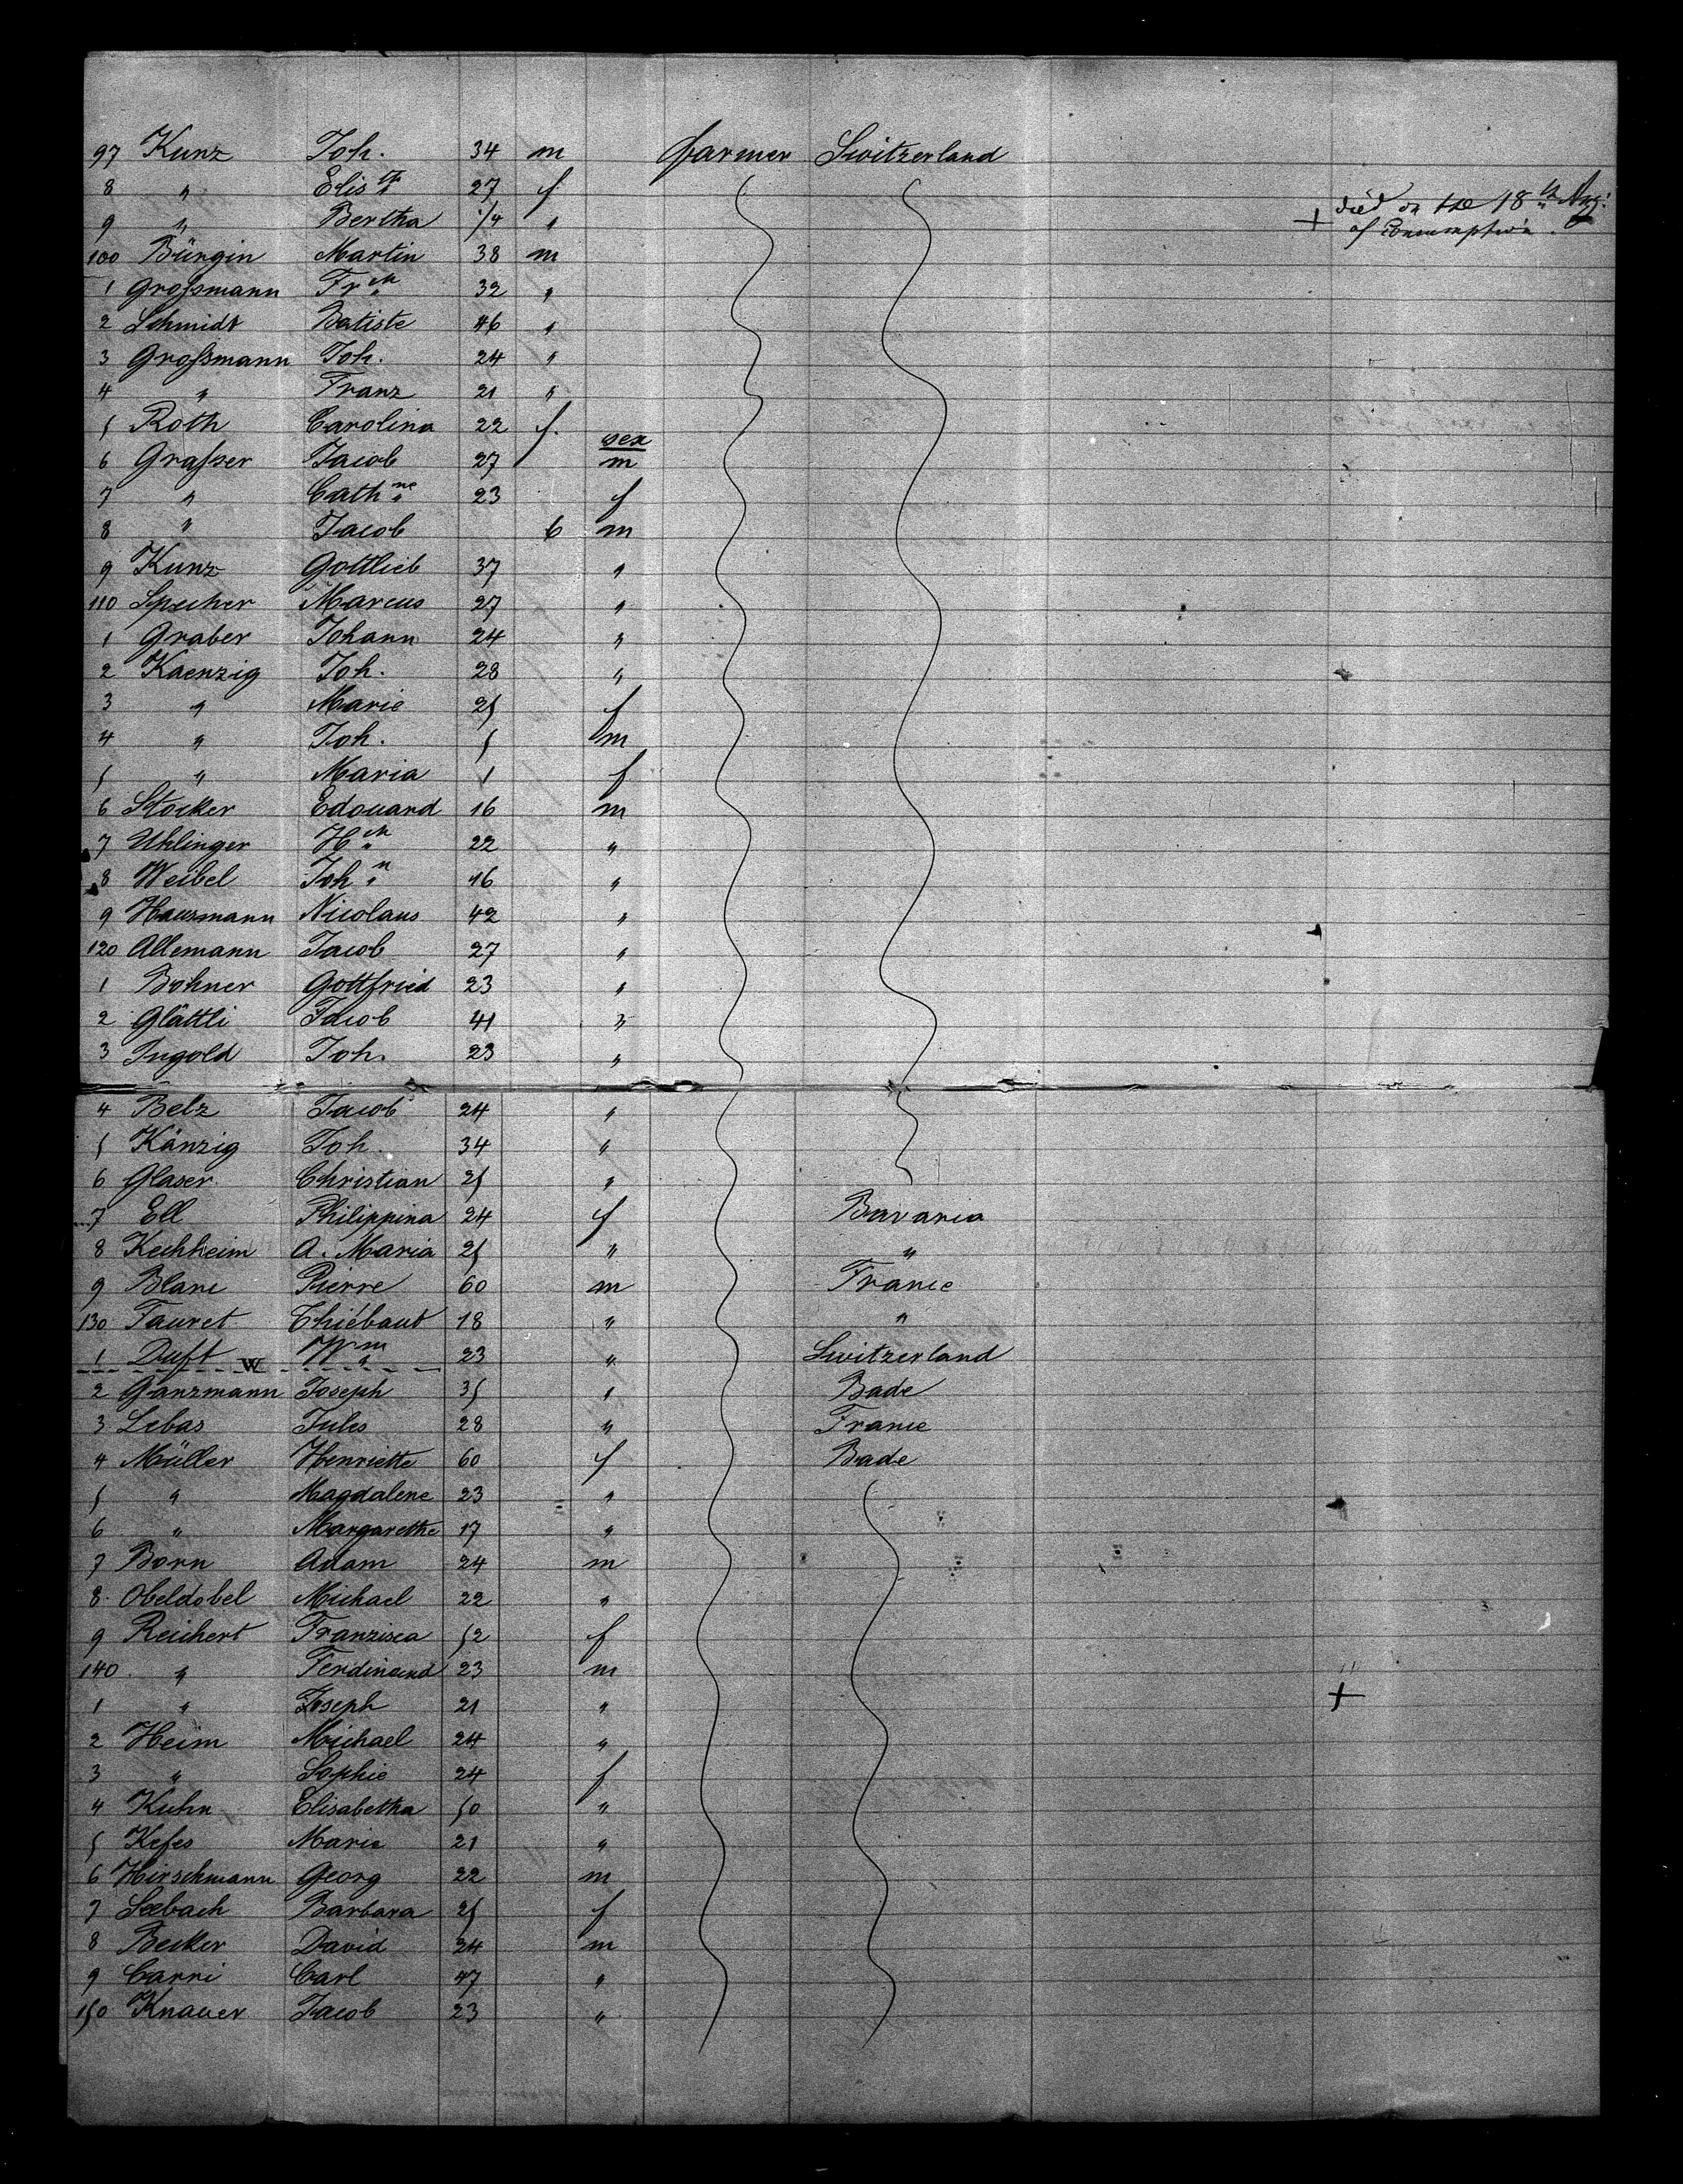 97 Kunz Joh. 34 m farmer Switzerland
8 " Elis th 27 f
9 " Bertha 1/4 " + died on the 18th of Consumption.
100 Bürgin Martin 38 m
1 Großmann Frch 32 "
2 Schmidt Batiste 46 "
3 Großmann Joh. 24 "
4 " Franz 21 "
5 Roth Carolina 22 f.
sex
6 Graßer Jacob 27 m
7 " Cathne 23 f
8 " Jacob 6 m
9 Kunz Gottlieb 37 "
110 Specher Marcus 27 "
1 Graber Johann 24 "
2 Kaenzig Joh. 28 "
3 " Marie 25 f
4 " Joh. 5 m
5 " Maria 1 f
6 Stocker Edouard 16 m
7 Uhlinger Hch 22 "
8 Weibel John 16 "
9 Hausmann Nicolaus 42 "
120 Allemann Jacob 27 "
1 Bohner Gottfried 23 "
2 Glättli Jacob 41 "
3 Ingold Joh. 23 "
4 Belz Jacob 24 "
5 Känzig Joh. 34 "
6 Glaser Christian 25 "
7 Ell Philippina 24 f Bavaria
8 Kechheim A. Maria 25 " "
9 Blanc Pierre 60 m France
130 Fauret Thiébaut 18 " "
1 Duft W Wm 23 " Switzerland
2 Ganzmann Joseph 35 " Bade
3 Lebas Jules 28 " France
4 Müller Henriette 60 f Bade
5 " Magdalene 23 "
6 " Margarethe 17 "
7 Born Adam 24 m
8. Obeldobel Michael 22 "
9 Reichert Franzisca 52 f
140 " Ferdinand 23 m
1 " Joseph 21 " +
2 Heim Michael 24 "
3 " Sophie 24 f
4 Kuhn Elisabetha 50 "
5 Kefes Marie 21 "
6 Hirschmann Georg 22 m
7 Seebach Barbara 25 f
8 Becker David 24 m
9 Carri Carl 47 "
150 Knauer Jacob 23 "